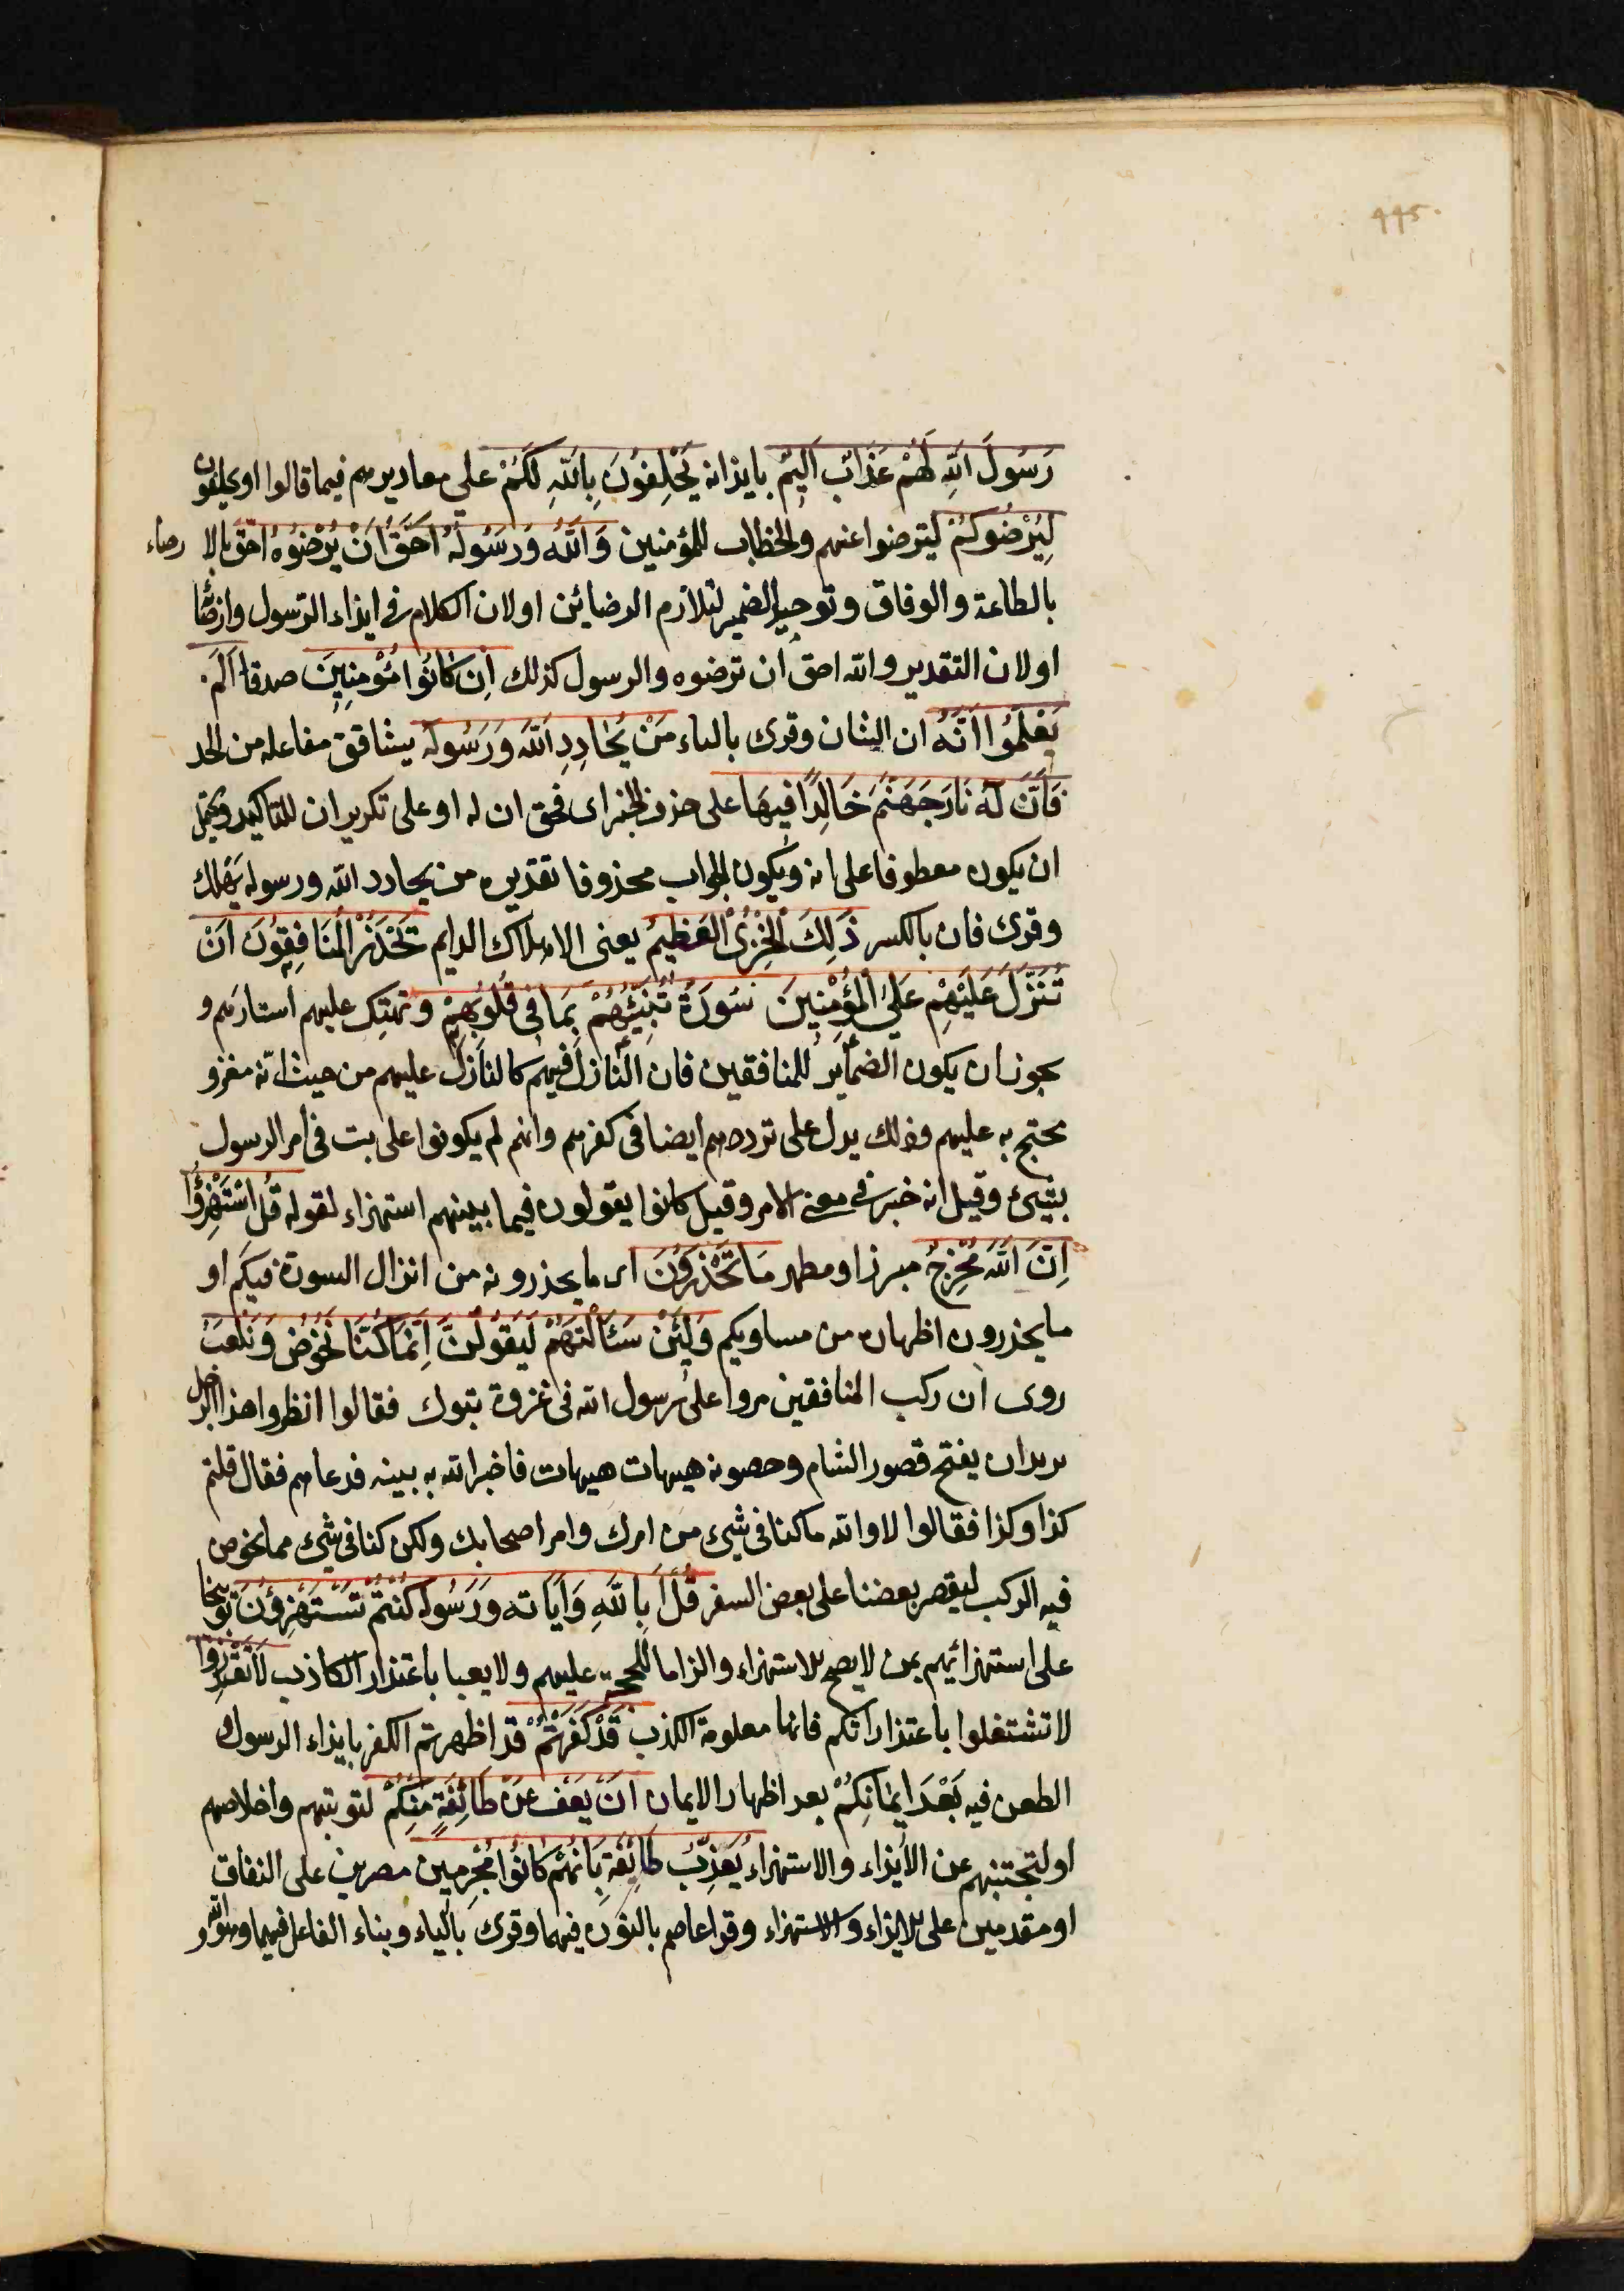 ٩٩٥
رَسُولَ اللّهِ لَهُمْ عَذَابٌ اَلِيمٌ بايذانه يَحْلِفُونَ بِاللّهِ لَكُمْ على معاديرهم فيما قالوا او يحلفون
لِيُرْضُوكُمْ ليترضوا عنهم والخطاب للمؤمنين وَاللّهُ وَرَسُولُهُ اَحَقُّ اَنْ يُرْضُوهُ احق بالارضاء
بالطاعة والوفاق وتوحيد الضمير لتلازم الرضائين او لان الكلام فى ايذاء الرسول وارضائه
او لان التقدير والله احق ان ترضوه والرسول كذلك اِن كَانُوا مُؤْمِنِينَ صدقا اَلَمْ
يَعْلَمُوا اَنَّهُ ان الشان وقرى بالتاء مَنْ يُحَادِدِ اللّهَ وَرَسُولَهُ يشاقق مفاعله من الحد
فَاَنَّ لَهُ نَارَ جَهَنَّمَ خَالِدًا فِيهَا على حذف الخبر اى فحق ان له او على تكرير ان للتاكيد ويحتمل
ان يكون معطوفا على انه ويكون الجواب محذوفا تقديره من يحادد الله ورسوله يهلك
وقرى فان بالكسر ذَلِكَ الْخِزْىُ الْعَظِيمُ يعنى الاهلاك الدايم يَحْذَرُ الْمُنَافِقُونَ اَنْ
تُنَزَّلَ عَلَيْهِمْ عَلَى الْمُؤْمِنِينَ سُورَةٌ تُنَبِّئُهُمْ بِمَا فِى قُلُوبِهِمْ وتهتك عليهم استارهم و
يجوز ان يكون الضماير للمنافقين فان النازل فيهم كالنازل عليهم من حيث انه مقرو
يحتج به عليهم وذلك يدل على ترددهم ايضا فى كفرهم وانهم لم يكونوا على بت فى امر الرسول
بشئ وقيل انه خبر فى معنى الامر وقيل كانوا يقولون فيما بينهم استهزاء لقوله قُل اسْتَهْزِؤُا
اِنَّ اللّهَ مُخْرِجٌ مبرز او مظهر مَا تَحْذَرُونَ اى ما يحذرونه من انزال السورة فيكم او
ما يحذرون اظهاره من مساويكم وَلَئِنْ سَئَالْتَهُمْ لَيَقُولُنَّ اِنَّمَا كُنَّا نَخُوضُ وَنَلْعَبُ
روى ان ركب المنافقين مروا على رسول الله فى غزوة تبوك فقالوا انظروا هذا الرجل
يريد ان يفتح قصور الشام وحصونه هيهات هيهات فاخبر الله به نبيه فدعاهم فقال قلتم
كذا وكذا فقالوا لا والله ما كنا فى شئ من امرك وامر اصحابك ولكن كنا فى شئ مما يخوض
فيه الركب ليقصر بعضنا على بعض السفر قُلْ اَبِاللّهِ وَآيَاتِه وَرَسُولِه كُنْتُمْ تَسْتَهْزِؤُنَ توبيخا
على استهزائهم بمن لا يصح الاستهزاء والزاما للحجة عليهم ولا يعبا باعتذار الكاذب لَا تَعْتَذِرُوا
لا تشتغلوا باعتذاراتكم فانها معلومة الكذب قَدْ كَفَرْتُمْ قد اظهرتم الكفر بايذاء الرسول
الطعن فيه بَعْدَ اِيمَانِكُمْ بعد اظهار الايمان اِنْ يَعْفُ عَنْ طَائِفَةٍ مِنْكُمْ لتوبتهم واخلاصهم
او لتجتنبهم عن الايذاء والاستهزاء يُعَذِّبْ طَائِفَةً بِاَنَّهُمْ كَانُوا مُجْرِمِينَ مصرين على النفاق
او مقدمين على الايذاء والاستهزاء وقرا عاصم بالنون فيهما وقرى بالياء وبناء الفاعل فيهما وهو الله